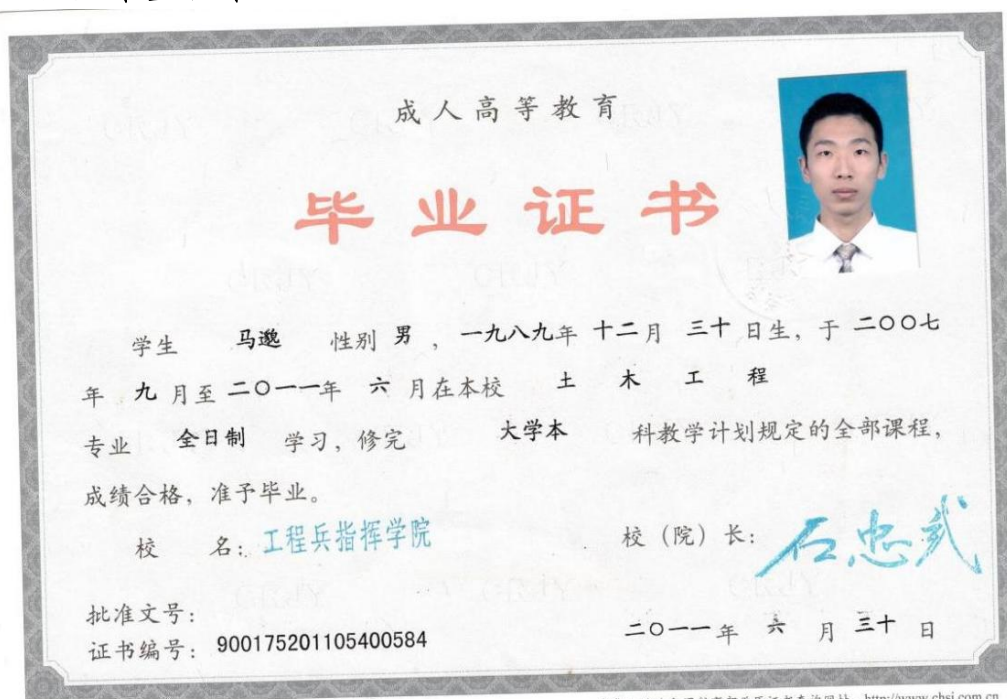 成人高等教育
毕业证书
学生 马邈 性别 男 ,一九八九年 十二月 三十 日生,于 二〇〇七
年 九 月至 二〇一一年 六 月在本校 土 木 工 程
专业 全日制 学习,修完 大学本 科教学计划规定的全部课程,
成绩合格,准予毕业。
校 名:工程兵指挥学院 校(院)长:石忠武
批准文号:
证书编号:900175201105400584 二〇一一年 六 月 三十 日
http://www.chsi.com.cn